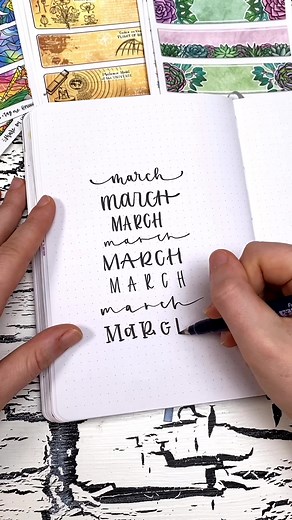 march
march
MARCH
march
MARCH
MARCH
march
MARCL